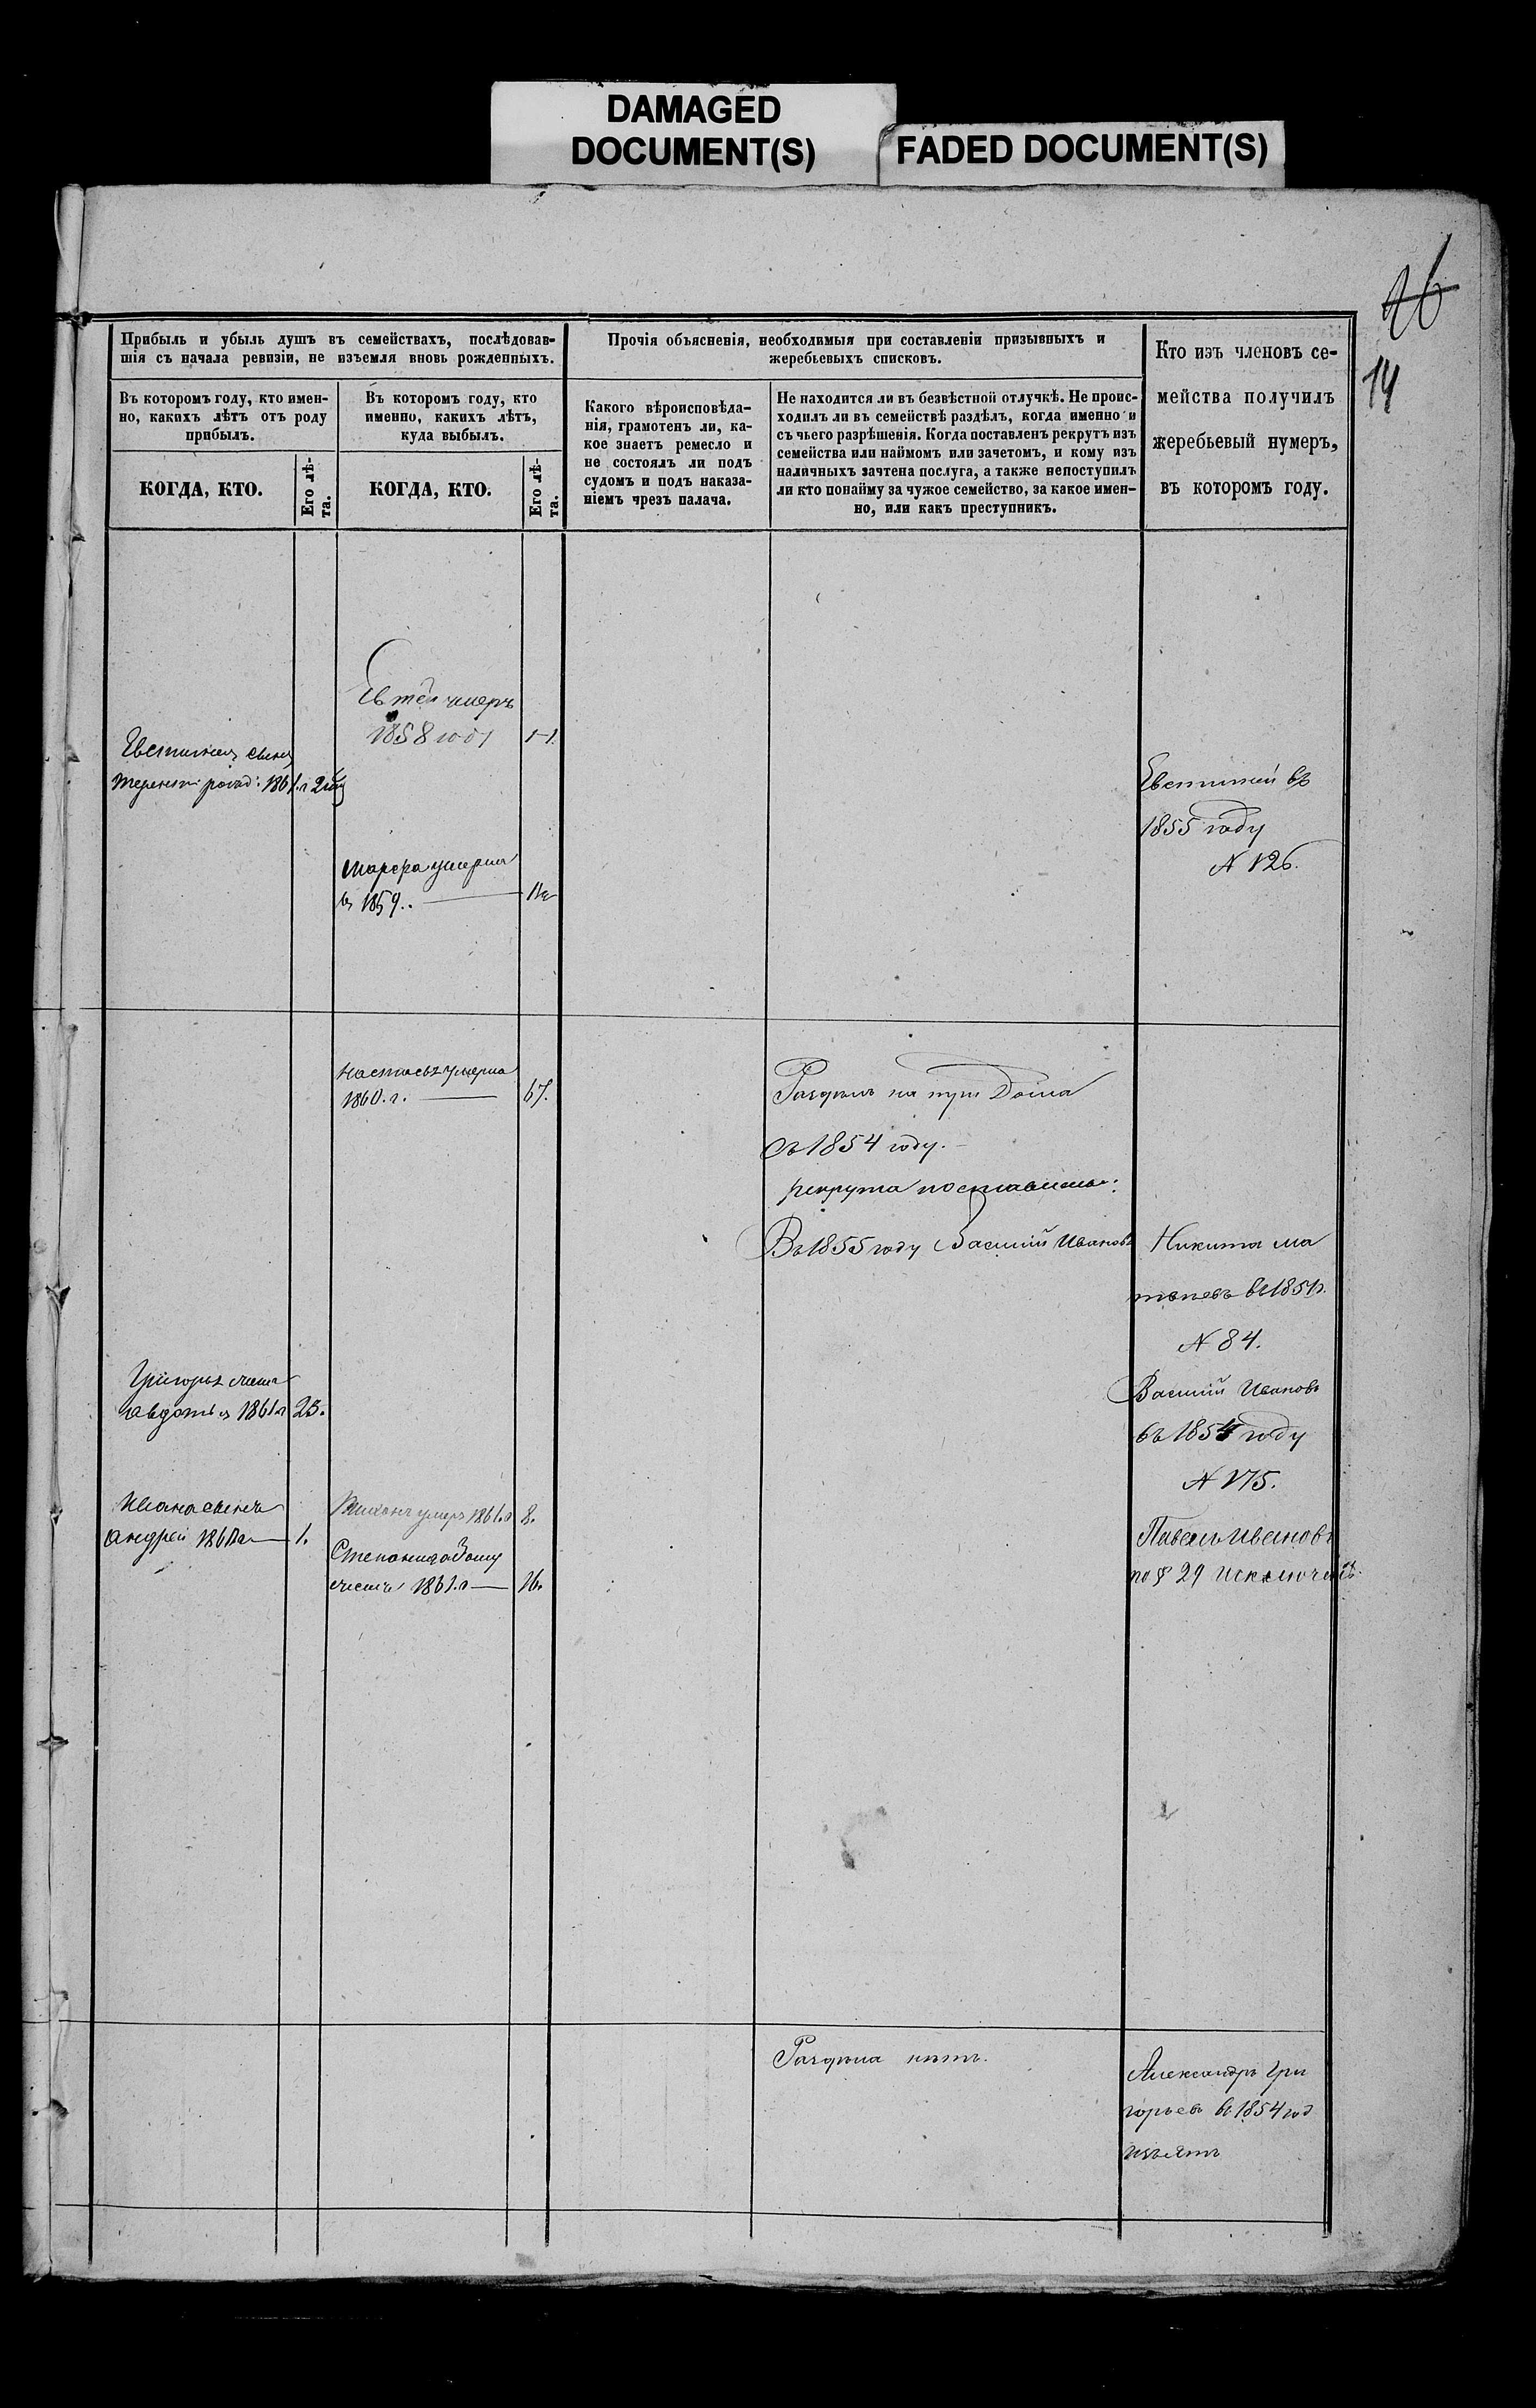 DAMAGED
DOCUMENT(S)
FADED DOCUMENT(S)
14
Прибыль и убыль душъ въ семействахъ, послѣдовав-
шія съ начала ревизіи, не изъемля вновь рожденныхъ.
Въ которомъ году, кто имен-
но, какихъ лѣтъ отъ роду
прибылъ.
КОГДА, КТО.
Его лѣ-
та.
Въ которомъ году, кто
именно, какихъ лѣтъ,
куда выбылъ.
КОГДА, КТО.
Его лѣ-
та.
Прочія объясненія, необходимыя при составленіи призывныхъ и
жеребьевыхъ списковъ.
Какого вѣроисповѣда-
нія, грамотенъ ли, ка-
кое знаетъ ремесло и
не состоялъ ли подъ
судомъ и подъ наказа-
ніемъ чрезъ палача.
Не находится ли въ безвѣстной отлучкѣ. Не проис-
ходилъ ли въ семействѣ раздѣлъ, когда именно и
съ чьего разрѣшенія. Когда поставленъ рекрутъ изъ
семейства или наймомъ или зачетомъ, и кому изъ
наличныхъ зачтена послуга, а также непоступилъ
ли кто понайму за чужое семейство, за какое имен-
но, или какъ преступникъ.
Кто изъ членовъ се-
мейства получилъ
жеребьевый нумеръ,
въ которомъ году.
умеръ
1858 году
Терентій 1861
Марфа умерла
въ 1859..
Евтихей въ
1855 году
№ 126.
Настасья умерла
1860. г. 67.
Раздѣлъ на три дома
съ 1854 году.
рекрута поставили:
Въ 1855 году Василій Ивановъ
Никита Ма
твеевъ въ 185
№ 84.
Василій Ивановъ
въ 1854 году
№ 175.
Павелъ Ивановъ
по § 29 исключенъ.
Григорья
Авдотья 1861 г 23.
Ивана сынъ
Андрей 1.
Тихонъ умеръ 1861. г 8.
1861. г 16.
Раздѣла нѣтъ.
Александръ Гри
горьевъ въ 1854 год
изъятъ